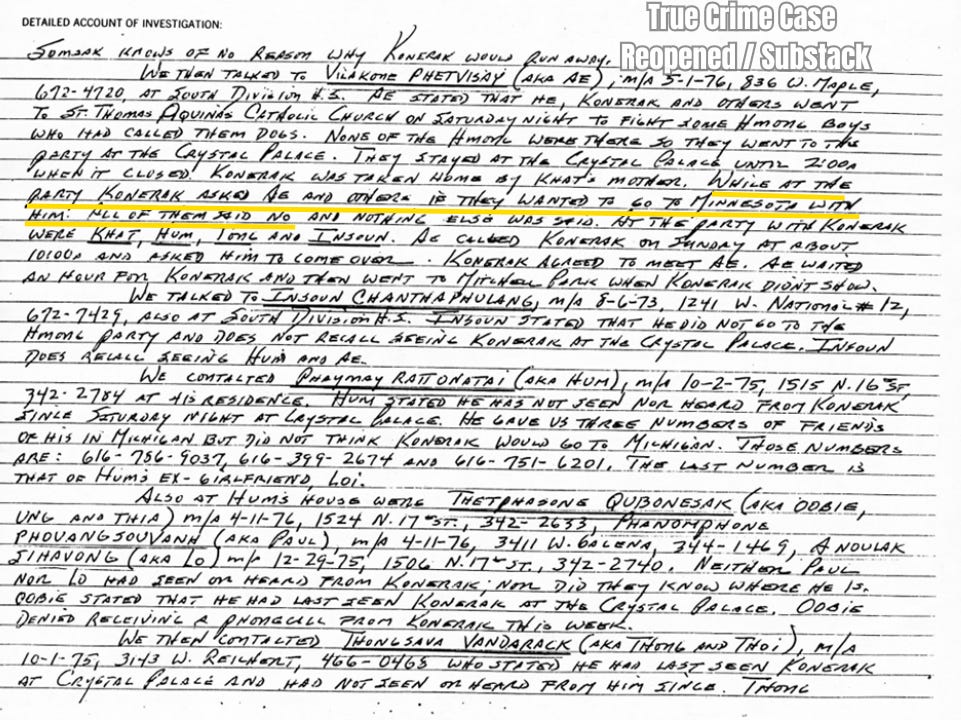 True Crime Case
Reopened / Substack
DETAILED ACCOUNT OF INVESTIGATION:
SOMSAK KNOWS OF NO REASON WHY KONERAK WOULD RUN AWAY.
WE THEN TALKED TO VILAKONE PHETVISAY (AKA AE), M/A 5-1-76, 836 W. MAPLE,
672-4720, AT SOUTH DIVISION H.S. AE STATED THAT HE, KONERAK AND OTHERS WENT
TO ST. THOMAS AQUINAS CATHOLIC CHURCH ON SATURDAY NIGHT TO FIGHT SOME HMONG BOYS
WHO HAD CALLED THEM DOGS. NONE OF THE HMONG WERE THERE SO THEY WENT TO THE
PARTY AT THE CRYSTAL PALACE. THEY STAYED AT THE CRYSTAL PALACE UNTIL 2:00A
WHEN IT CLOSED. KONERAK WAS TAKEN HOME BY KHAT'S MOTHER. WHILE AT THE
PARTY KONERAK ASKED AE AND OTHERS IF THEY WANTED TO GO TO MINNESOTA WITH
HIM. ALL OF THEM SAID NO AND NOTHING ELSE WAS SAID. AT THE PARTY WITH KONERAK
WERE KHAT, HUM, TONG AND INSOUN. AE CALLED KONERAK ON SUNDAY AT ABOUT
10:00A AND ASKED HIM TO COME OVER. KONERAK AGREED TO MEET AE. AE WAITED
AN HOUR FOR KONERAK AND THEN WENT TO MITCHELL PARK WHEN KONERAK DIDN'T SHOW.
WE TALKED TO INSOUN CHANTHAPHULANG, M/A 8-6-73, 1241 W. NATIONAL #12,
672-7429, ALSO AT SOUTH DIVISION H.S. INSOUN STATED THAT HE DID NOT GO TO THE
HMONG PARTY AND DOES NOT RECALL SEEING KONERAK AT THE CRYSTAL PALACE. INSOUN
DOES RECALL SEEING HUM AND AE.
WE CONTACTED PHAYMAY RATTONATAI (AKA HUM), M/A 10-2-75, 1515 N. 16 ST,
342-2784 AT HIS RESIDENCE. HUM STATED HE HAS NOT SEEN NOR HEARD FROM KONERAK
SINCE SATURDAY NIGHT AT CRYSTAL PALACE. HE GAVE US THREE NUMBERS OF FRIENDS
OF HIS IN MICHIGAN BUT DID NOT THINK KONERAK WOULD GO TO MICHIGAN. THOSE NUMBERS
ARE: 616-786-9037, 616-399-2674 AND 616-751-6201. THE LAST NUMBER IS
THAT OF HUM'S EX-GIRLFRIEND, LOI.
ALSO AT HUM'S HOUSE WERE THETPHASONE QUBONESAK (AKA OOBIE,
UNG AND THIA) M/A 4-11-76, 1524 N. 17TH ST., 342-2633, PHANOMPHONE
PHOUANGSOUVANH (AKA PAUL), M/A 4-11-76, 3411 W. GALENA, 344-1469, ANOULAK
SIHAVONG (AKA LO) M/A 12-29-75, 1506 N. 17TH ST., 342-2740. NEITHER PAUL
NOR LO HAD SEEN OR HEARD FROM KONERAK; NOR DID THEY KNOW WHERE HE IS.
OOBIE STATED THAT HE HAD LAST SEEN KONERAK AT THE CRYSTAL PALACE. OOBIE
DENIED RECEIVING A PHONECALL FROM KONERAK THIS WEEK.
WE THEN CONTACTED THONGSAVA VANDARACK (AKA THONG AND THOI), M/A
10-1-75, 3143 W. REICHERT, 466-0468 WHO STATED HE HAD LAST SEEN KONERAK
AT CRYSTAL PALACE AND HAD NOT SEEN OR HEARD FROM HIM SINCE. THONG